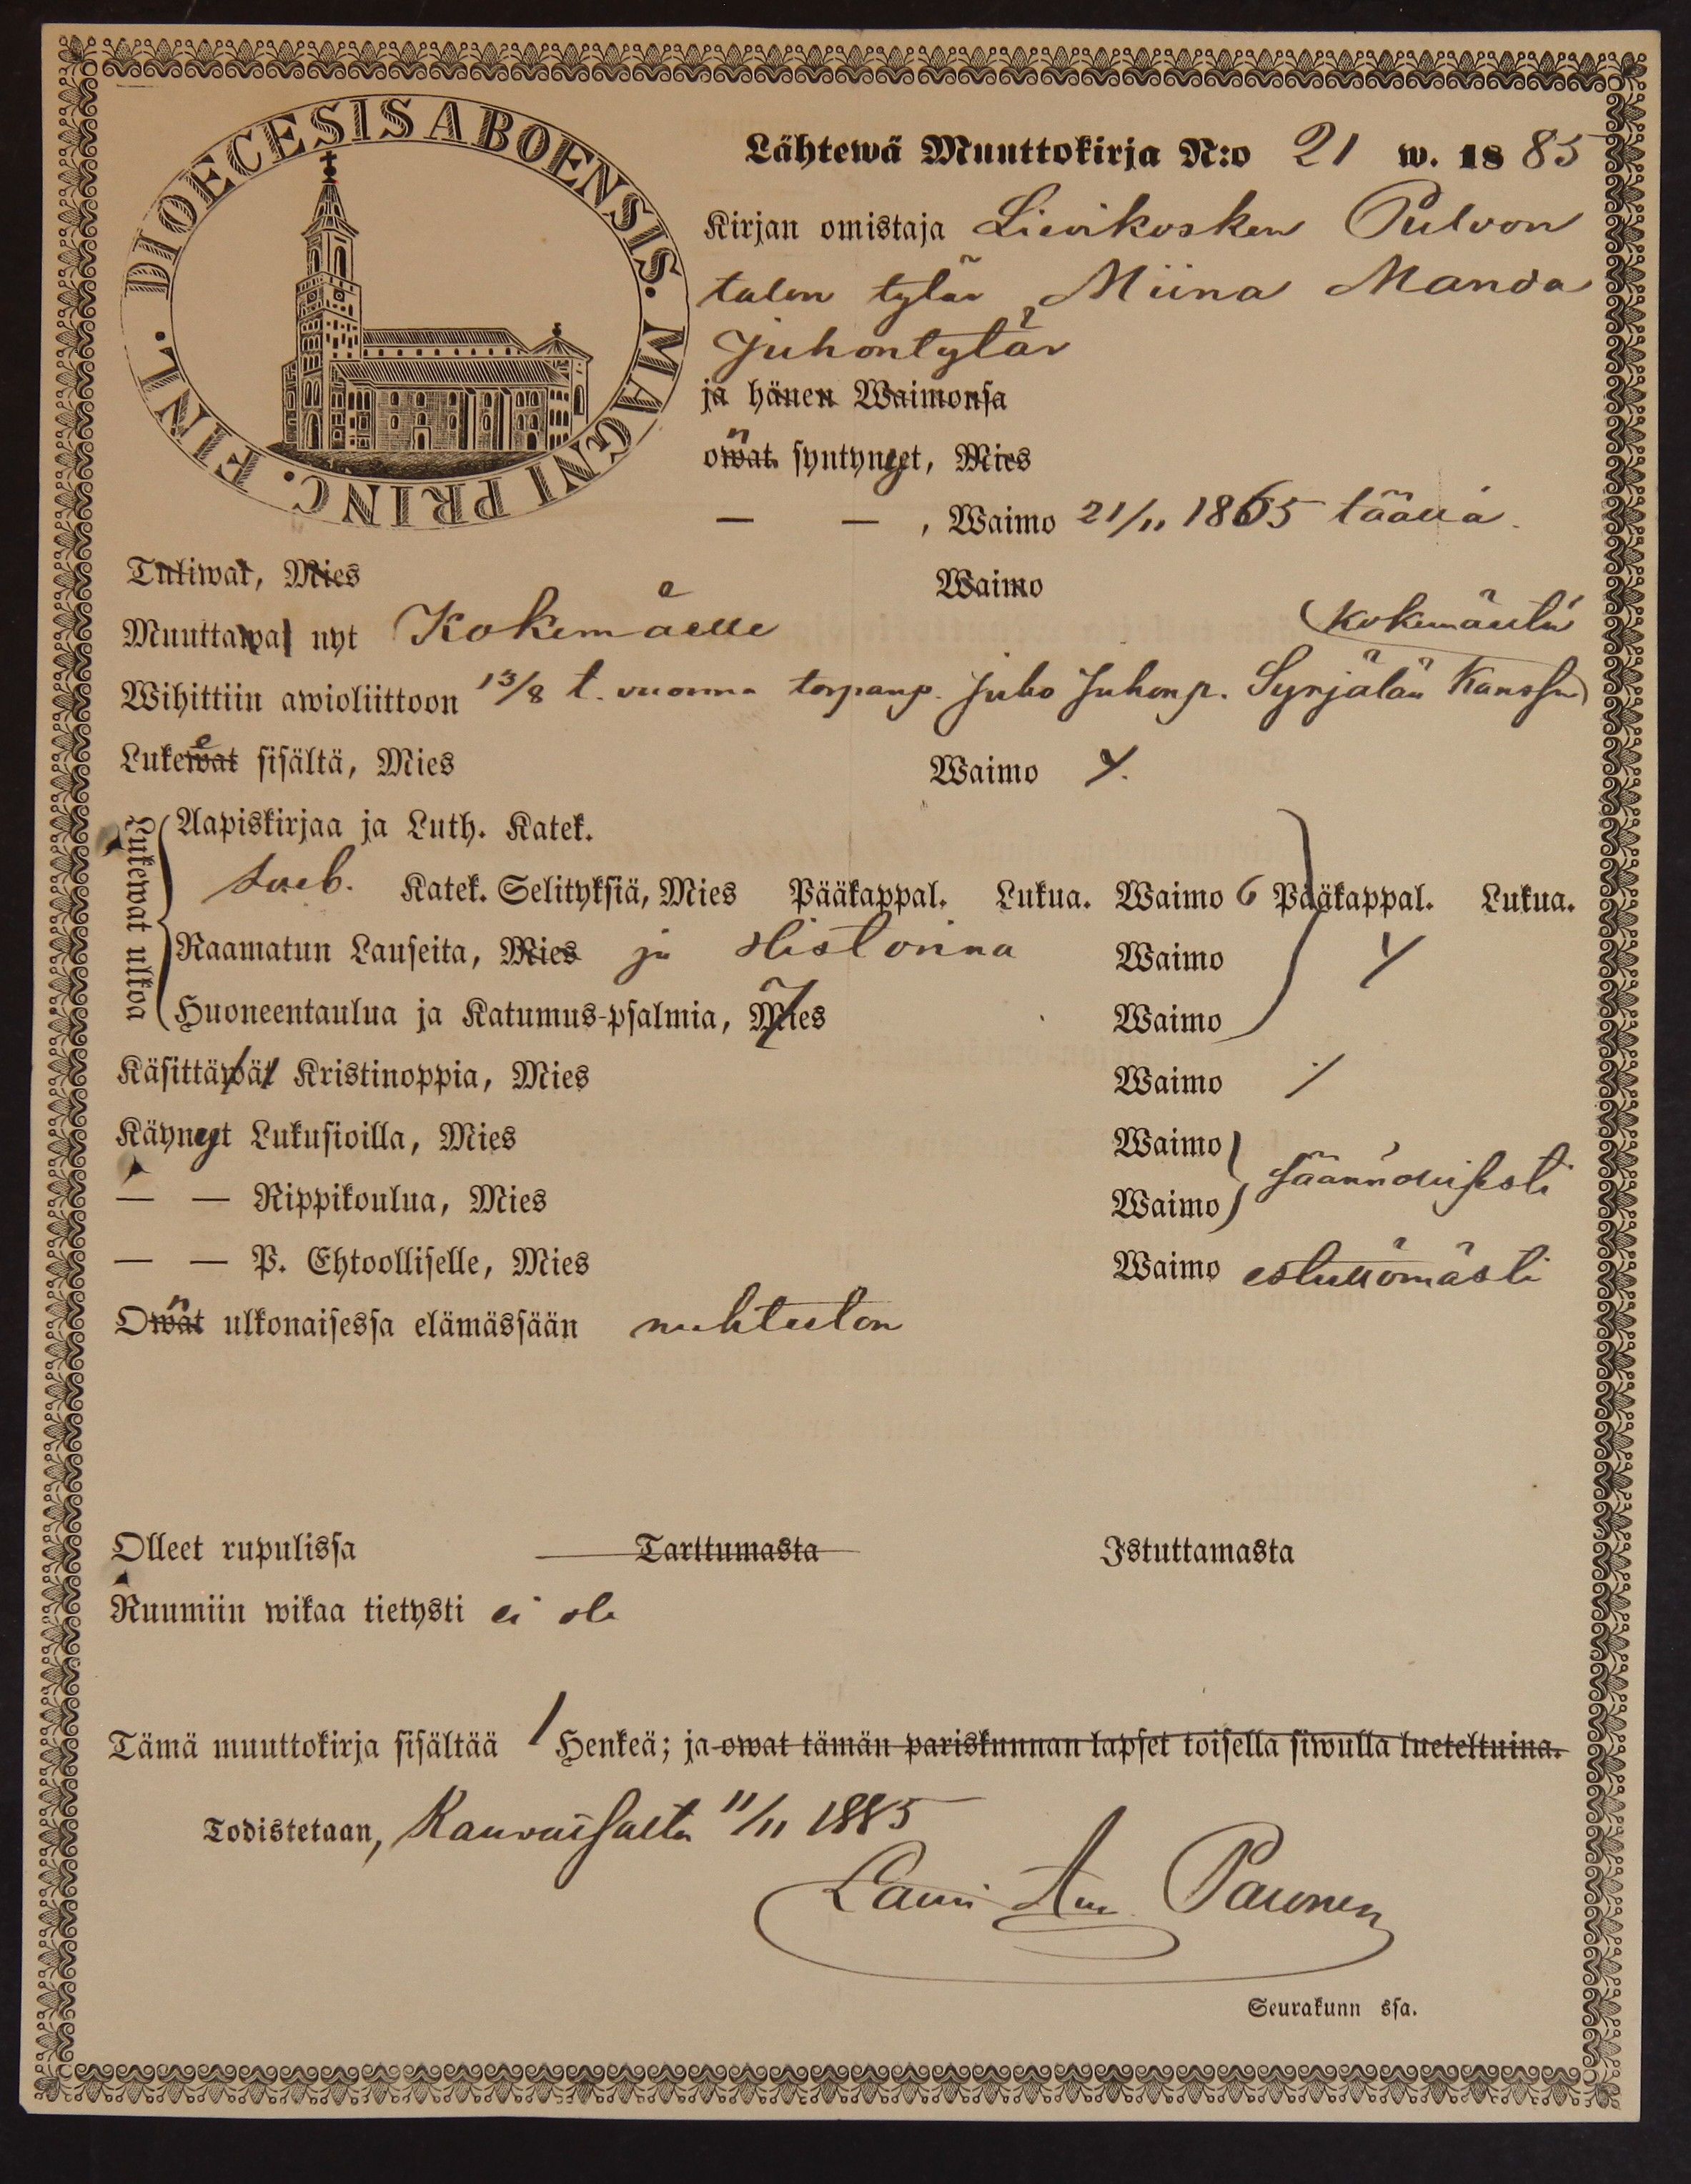 DIOECESIS ABOENSIS. MAGNI PRINC. FINL.
Lähtewä Muuttokirja N:o 21 w. 1885
Kirjan omistaja Lievikosken Pulvon
talon tytär Miina Manda
Juhontytär
ja hänen Waimonsa
owat syntyneet, Mies
— — , Waimo 21/11 1865 täällä.
Tuliwat, Mies Waimo
Muuttawat nyt Kokemäelle
Kokemäeltä
Wihittiin awioliittoon 13/8 t. vuonna torpanp. Juho Juhonp. Syrjälän kanssa
Lukewat sisältä, Mies Waimo
Lukewat ulkoa
Aapiskirjaa ja Luth. Katek.
Katek. Selityksiä, Mies Pääkappal. Lukua. Waimo 6 Pääkappal. Lukua.
Raamatun Lauseita, Mies ja Historiaa Waimo
Huoneentaulua ja Katumus-psalmia, Mies Waimo
Käsittäwät Kristinoppia, Mies Waimo
Käyneet Lukusioilla, Mies Waimo
säännöllisesti
— — Rippikoulua, Mies Waimo
— — P. Ehtoolliselle, Mies Waimo esteettömästi
Owat ulkonaisessa elämässään nuhteeton
Olleet rupulissa Tarttumasta Istuttamasta
Ruumiin wikaa tietysti ei ole
Tämä muuttokirja sisältää 1 Henkeä; ja owat tämän pariskunnan lapset toisella siwulla lueteltuina.
Todistetaan, Kauvatsalta 11/11 1885
Lauri Paronen
Seurakunn ssa.